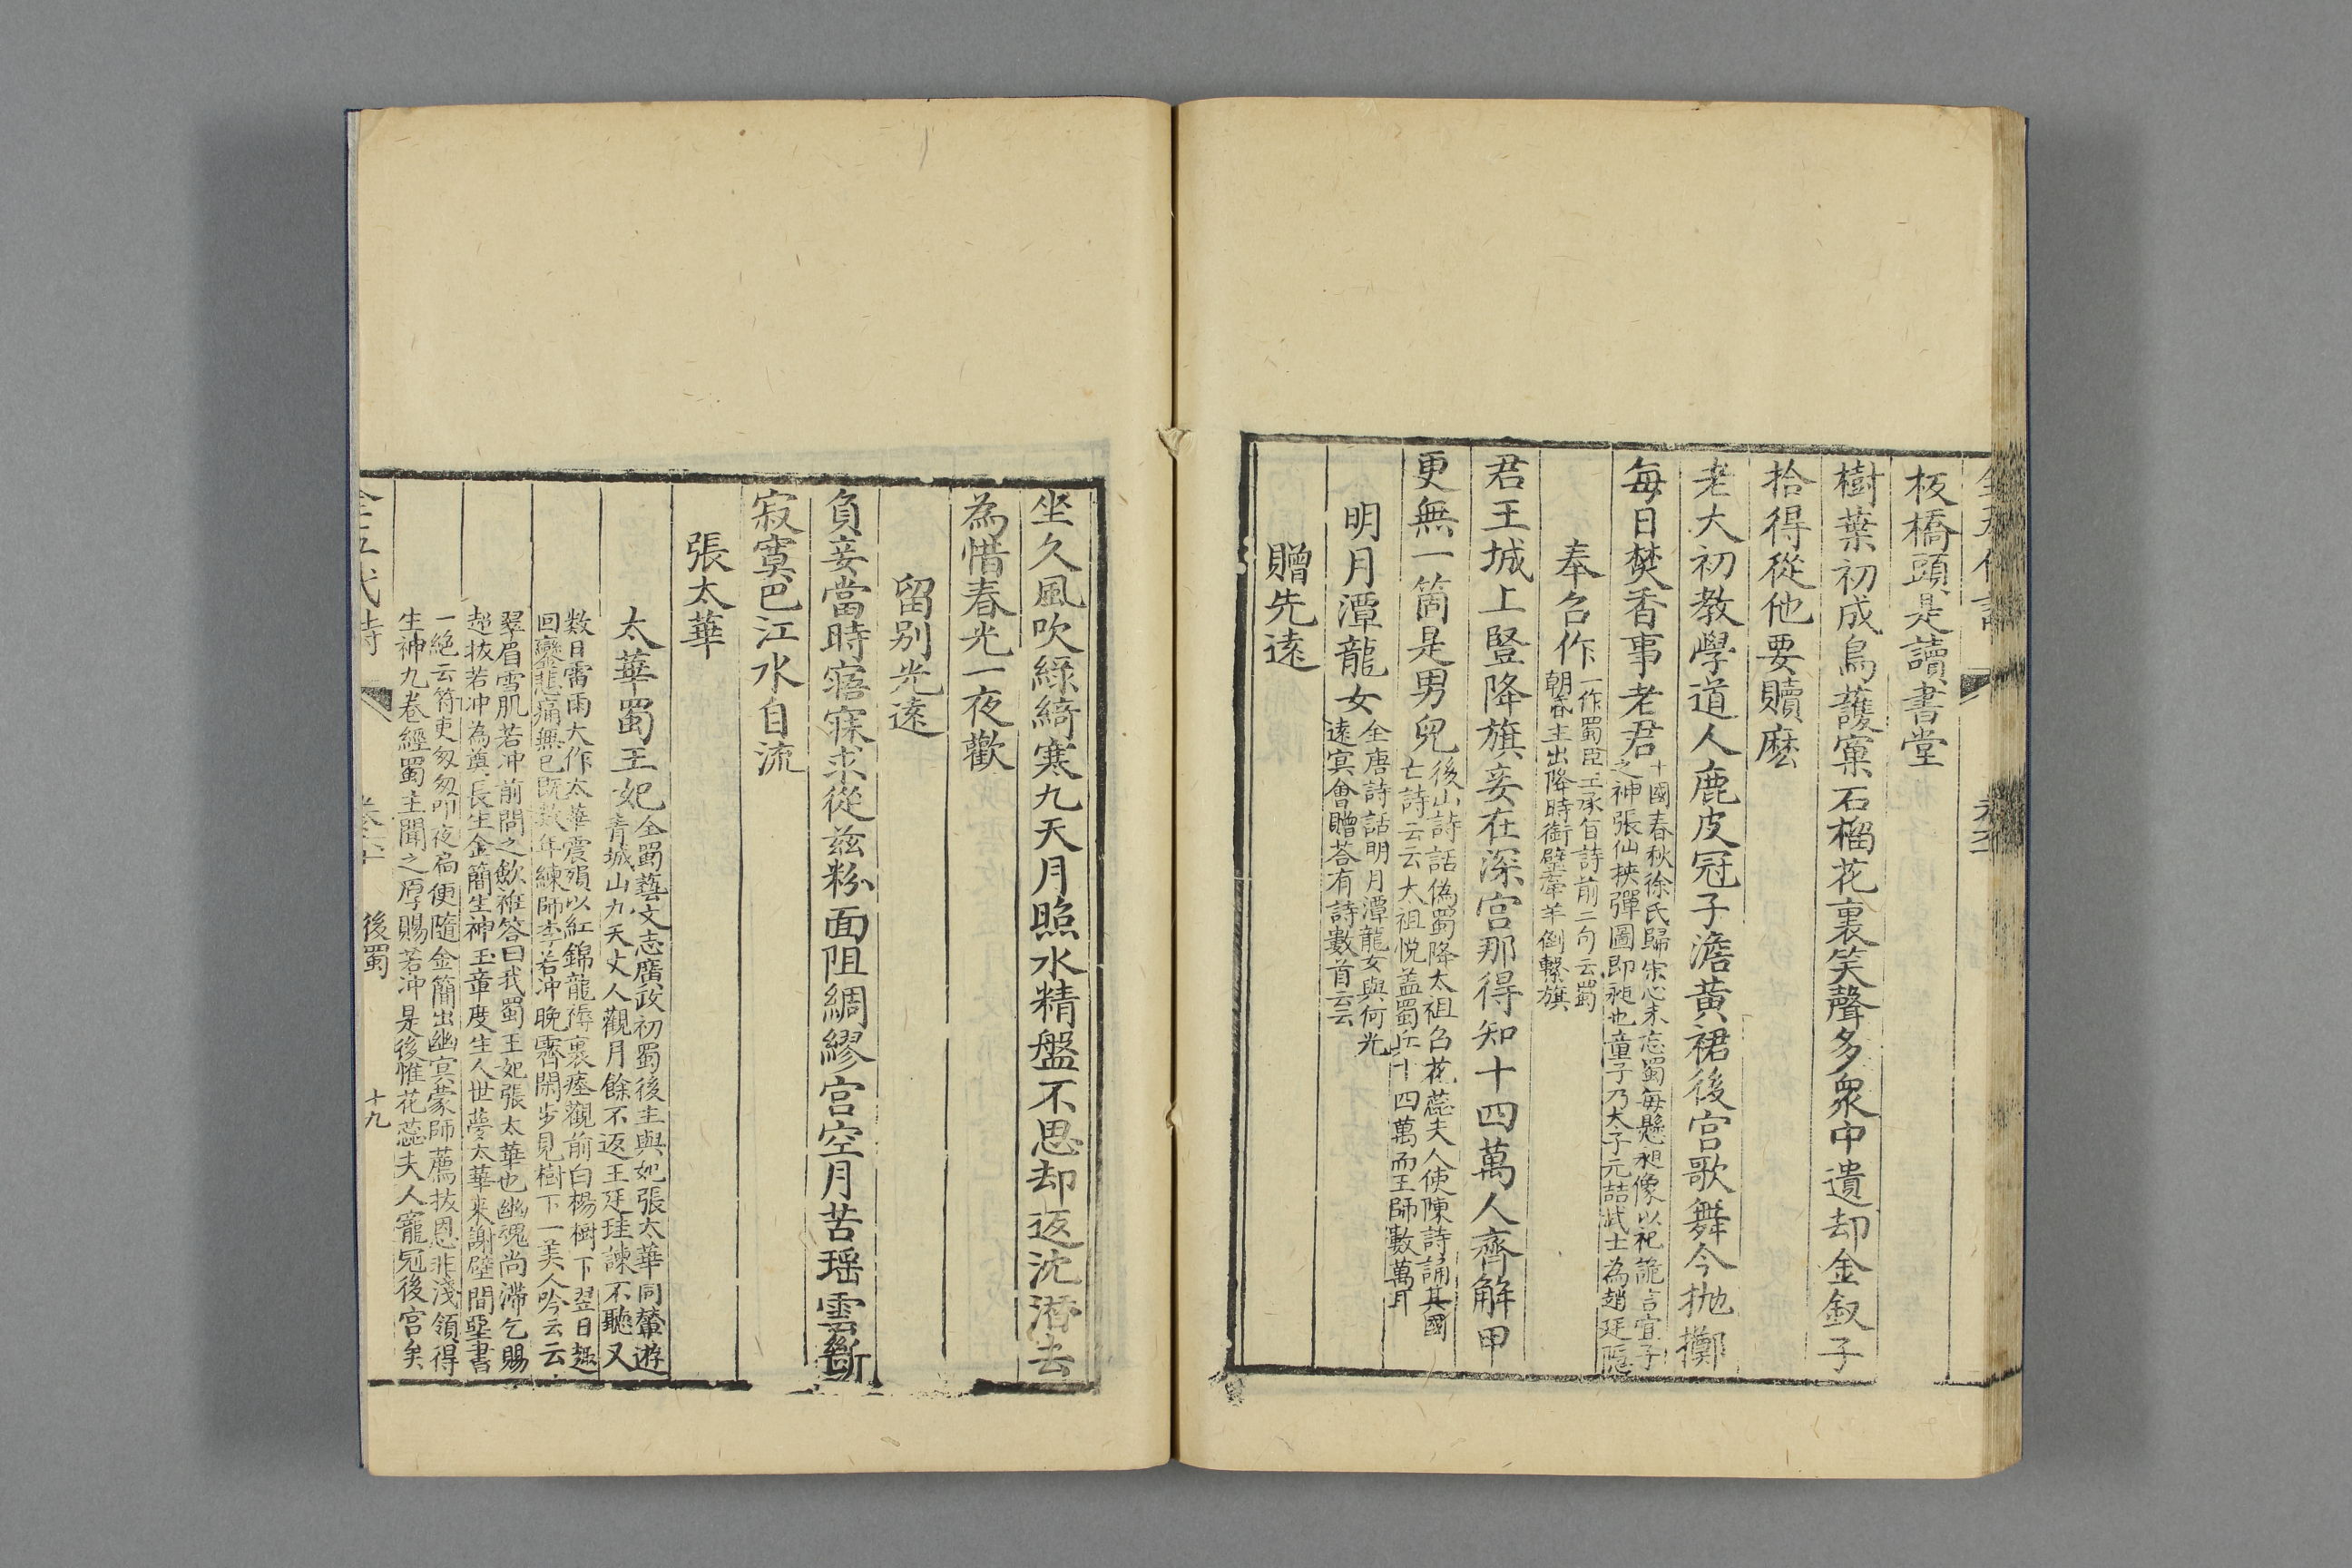 板橋頭是讀書堂
樹葉初成鳥護窠石榴花裏笑聲多衆中遺却金釵子
拾得從他要贖麽
老大初教學道人鹿皮冠子澹黃裙後宮歌舞今抛擲
每日焚香事老君十國春秋徐氏歸宋心未忘蜀每懸昶像以祀詭言宜子
之神張仙挾彈圖即昶也童子乃太子元喆武士為趙廷隱
奉召作一作蜀臣王承旨詩前二句云蜀
朝昏主出降時銜璧牽羊倒繫旗
君王城上豎降旗妾在深宫那得知十四萬人齊解甲
更無一箇是男兒後山詩話偽蜀降太祖召花蕊夫人使陳詩誦其國
亡詩云云太祖悦盖蜀兵十四萬而王師數萬耳
明月潭龍女全唐詩話明月潭龍女與何光
遠冥會贈荅有詩數首云云
贈先遠
坐久風吹綠綺寒九天月照水精盤不思却返沈潛去
為惜春光一夜歡
留别光遠
負妾當時寤寐求從兹粉面阻綢繆宫空月苦瑶雲斷
寂寞巴江水自流
張太華
太華蜀王妃全蜀藝文志廣政初蜀後主與妃張太華同輦遊
青城山九天丈人觀月餘不返王廷珪諫不聽又
数日雷雨大作太華震殞以紅錦龍褥裹瘞觀前白楊樹下翌日趣
回鑾悲痛無已既数年練師李若冲晚霽閑步見樹下一美人吟云云
翠眉雪肌若冲前問之歛袵答曰我蜀王妃張太華也幽魂尚滯乞賜
超拔若冲為奠長生金簡生神玉章度生人世夢太華来謝壁間堊書
一絕云符吏匆匆叩夜扃便隨金簡出幽冥蒙師薦拔恩非淺領得
生神九卷經蜀主聞之厚賜若冲是後惟花蕊夫人寵冠後宫矣
後蜀
十九